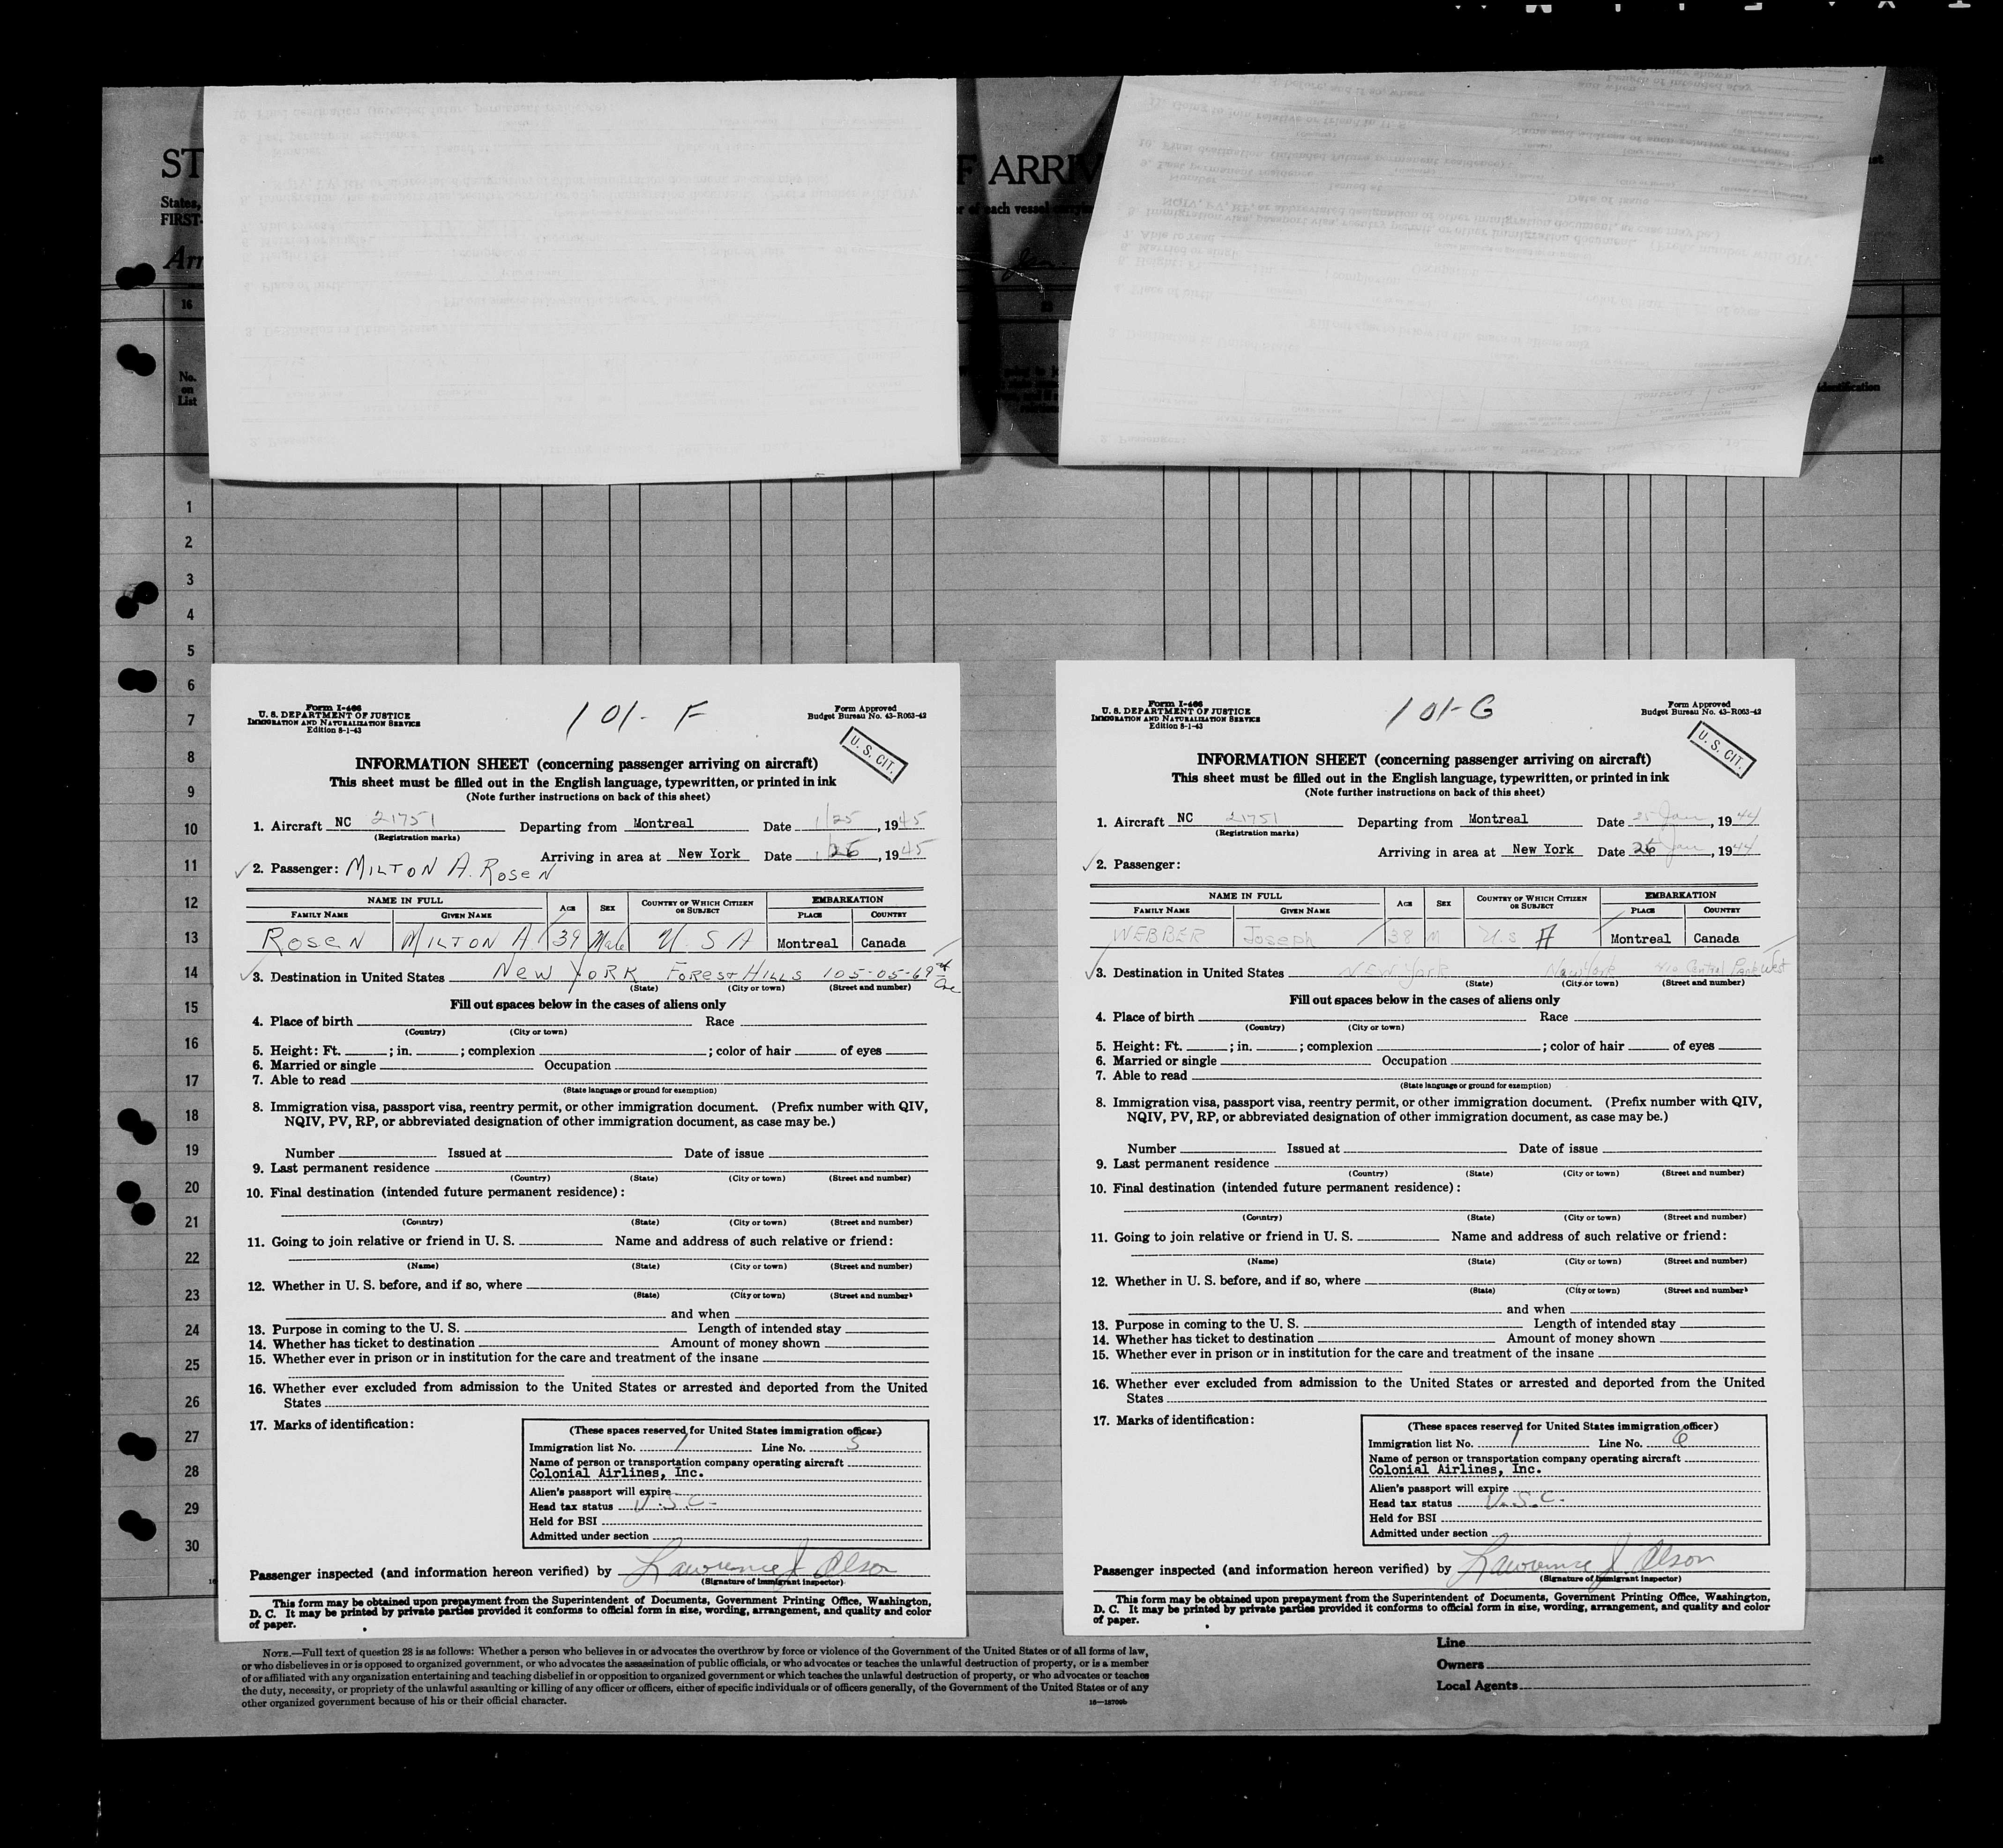 ST
F ARRIV
States,
FIRST-
Arr
16
No.
on
List
identification
1
2
3
4
5
6
7
8
9
10
11
12
13
14
15
16
17
18
19
20
21
22
23
24
25
26
27
28
29
30
Form I-466
U. S. DEPARTMENT OF JUSTICE
IMMIGRATION AND NATURALIZATION SERVICE
Edition 8-1-43
101- F
Form Approved
Budget Bureau No. 43-R063-42
U. S. CIT.
INFORMATION SHEET (concerning passenger arriving on aircraft)
This sheet must be filled out in the English language, typewritten, or printed in ink
(Note further instructions on back of this sheet)
1. Aircraft NC 21751 Departing from Montreal Date 1/25, 1945
(Registration marks)
Arriving in area at New York Date 1/26, 1945
2. Passenger: MILTON A. ROSEN
NAME IN FULL AGE SEX COUNTRY OF WHICH CITIZEN OR SUBJECT EMBARKATION
FAMILY NAME GIVEN NAME PLACE COUNTRY
ROSEN MILTON A 39 Male U S A Montreal Canada
3. Destination in United States NEW YORK FOREST HILLS 105-05-69th Ave
(State) (City or town) (Street and number)
Fill out spaces below in the cases of aliens only
4. Place of birth Race
(Country) (City or town)
5. Height: Ft. ; in. ; complexion ; color of hair of eyes
6. Married or single Occupation
7. Able to read
(State language or ground for exemption)
8. Immigration visa, passport visa, reentry permit, or other immigration document. (Prefix number with QIV,
NQIV, PV, RP, or abbreviated designation of other immigration document, as case may be.)
Number Issued at Date of issue
9. Last permanent residence
(Country) (State) (City or town) (Street and number)
10. Final destination (intended future permanent residence):
(Country) (State) (City or town) (Street and number)
11. Going to join relative or friend in U. S. Name and address of such relative or friend:
(Name) (State) (City or town) (Street and number)
12. Whether in U. S. before, and if so, where
(State) (City or town) (Street and number)
and when
13. Purpose in coming to the U. S. Length of intended stay
14. Whether has ticket to destination Amount of money shown
15. Whether ever in prison or in institution for the care and treatment of the insane
16. Whether ever excluded from admission to the United States or arrested and deported from the United
States
17. Marks of identification:
(These spaces reserved for United States immigration officer)
Immigration list No. 1 Line No. 5
Name of person or transportation company operating aircraft
Colonial Airlines, Inc.
Alien's passport will expire
Head tax status U.S.C.
Held for BSI
Admitted under section
Passenger inspected (and information hereon verified) by Lawrence J. Olson
(Signature of immigrant inspector)
This form may be obtained upon prepayment from the Superintendent of Documents, Government Printing Office, Washington,
D. C. It may be printed by private parties provided it conforms to official form in size, wording, arrangement, and quality and color
of paper.
Form I-466
U. S. DEPARTMENT OF JUSTICE
IMMIGRATION AND NATURALIZATION SERVICE
Edition 8-1-43
101-G
Form Approved
Budget Bureau No. 43-R063-42
U. S. CIT.
INFORMATION SHEET (concerning passenger arriving on aircraft)
This sheet must be filled out in the English language, typewritten, or printed in ink
(Note further instructions on back of this sheet)
1. Aircraft NC 21751 Departing from Montreal Date 25 Jan, 1944
(Registration marks)
Arriving in area at New York Date 26 Jan, 1944
2. Passenger:
NAME IN FULL AGE SEX COUNTRY OF WHICH CITIZEN OR SUBJECT EMBARKATION
FAMILY NAME GIVEN NAME PLACE COUNTRY
WEBBER Joseph 38 M U.S A Montreal Canada
3. Destination in United States NEW York New York 410 Central Park West
(State) (City or town) (Street and number)
Fill out spaces below in the cases of aliens only
4. Place of birth Race
(Country) (City or town)
5. Height: Ft. ; in. ; complexion ; color of hair of eyes
6. Married or single Occupation
7. Able to read
(State language or ground for exemption)
8. Immigration visa, passport visa, reentry permit, or other immigration document. (Prefix number with QIV,
NQIV, PV, RP, or abbreviated designation of other immigration document, as case may be.)
Number Issued at Date of issue
9. Last permanent residence
(Country) (State) (City or town) (Street and number)
10. Final destination (intended future permanent residence):
(Country) (State) (City or town) (Street and number)
11. Going to join relative or friend in U. S. Name and address of such relative or friend:
(Name) (State) (City or town) (Street and number)
12. Whether in U. S. before, and if so, where
(State) (City or town) (Street and number)
and when
13. Purpose in coming to the U. S. Length of intended stay
14. Whether has ticket to destination Amount of money shown
15. Whether ever in prison or in institution for the care and treatment of the insane
16. Whether ever excluded from admission to the United States or arrested and deported from the United
States
17. Marks of identification:
(These spaces reserved for United States immigration officer)
Immigration list No. 1 Line No. 6
Name of person or transportation company operating aircraft
Colonial Airlines, Inc.
Alien's passport will expire
Head tax status U.S.C.
Held for BSI
Admitted under section
Passenger inspected (and information hereon verified) by Lawrence J. Olson
(Signature of immigrant inspector)
This form may be obtained upon prepayment from the Superintendent of Documents, Government Printing Office, Washington,
D. C. It may be printed by private parties provided it conforms to official form in size, wording, arrangement, and quality and color
of paper.
NOTE.—Full text of question 28 is as follows: Whether a person who believes in or advocates the overthrow by force or violence of the Government of the United States or of all forms of law,
or who disbelieves in or is opposed to organized government, or who advocates the assassination of public officials, or who advocates or teaches the unlawful destruction of property, or is a member
of or affiliated with any organization entertaining and teaching disbelief in or opposition to organized government or which teaches the unlawful destruction of property, or who advocates or teaches
the duty, necessity, or propriety of the unlawful assaulting or killing of any officer or officers, either of specific individuals or of officers generally, of the Government of the United States or of any
other organized government because of his or their official character.
16—18700b
Line
Owners
Local Agents